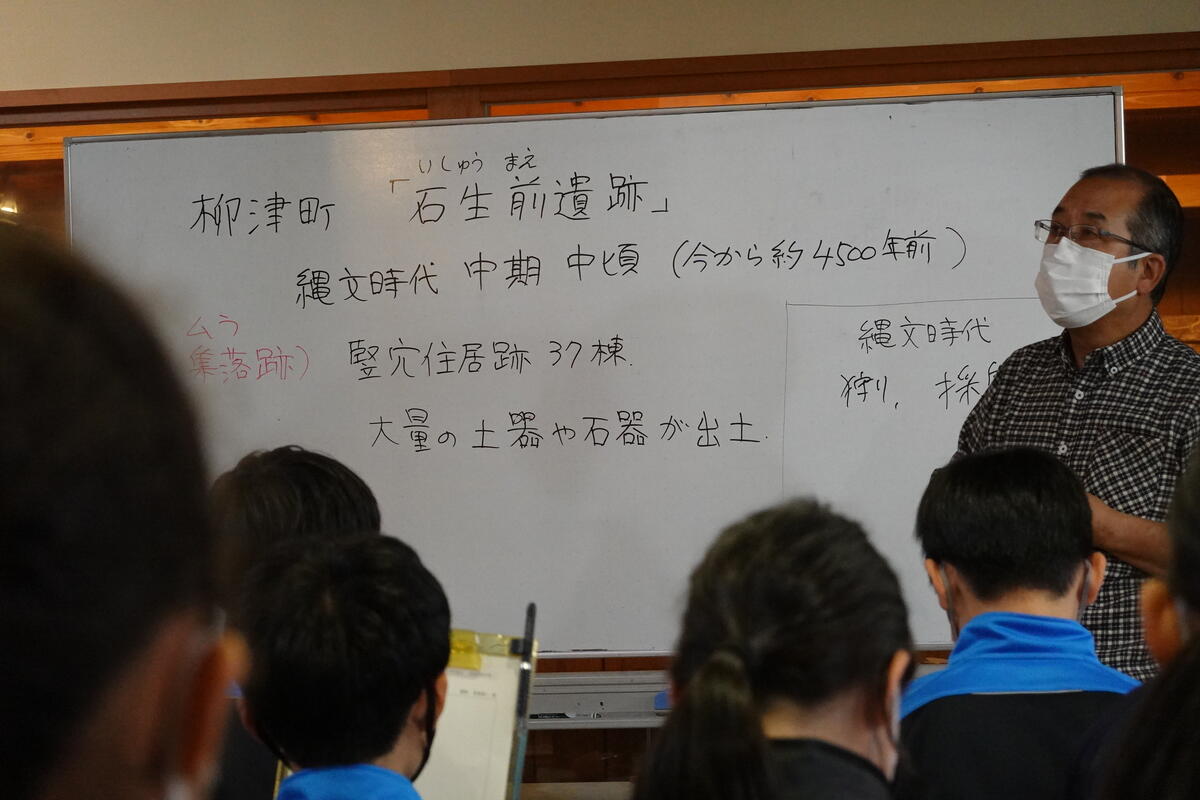 いしゅう まえ
柳津町 「石生前遺跡」
縄文時代 中期 中頃 (今から約4500年前)
ムラ
集落跡) 竪穴住居跡 37棟.
大量の土器や石器が出土.
縄文時代
狩り, 採